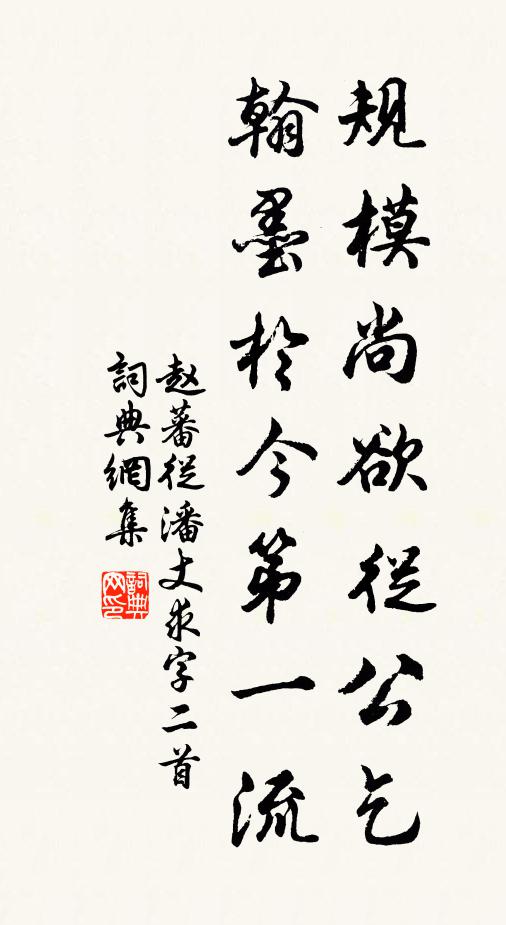 規模尚欲從公乞
翰墨於今第一流
趙蕃從潘丈求字二首
詞典網集
詞典网印